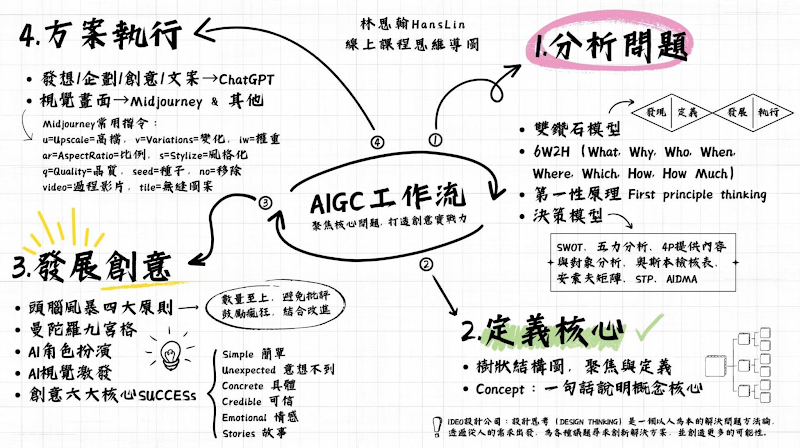 林恩翰HansLin
線上課程思維導圖
AIGC工作流
聚焦核心問題，打造創意實戰力
①
②
③
④
1.分析問題
發現 定義 發展 執行
• 雙鑽石模型
• 6W2H (What, Why, Who, When,
Where, Which, How, How Much)
• 第一性原理 First principle thinking
• 決策模型
SWOT, 五力分析, 4P提供內容
與對象分析, 奧斯本檢核表,
安索夫矩陣, STP, AIDMA
2.定義核心
• 樹狀結構圖, 聚焦與定義
• Concept : 一句話說明概念核心
IDEO設計公司：設計思考 (DESIGN THINKING) 是一個以人為本的解決問題方法論,
透過從人的需求出發, 為各種議題尋求創新解決方案, 並創造更多的可能性。
3.發展創意
• 頭腦風暴四大原則
數量至上, 避免批評
鼓勵瘋狂, 結合改進
• 曼陀羅九宮格
• AI角色扮演
• AI視覺激發
• 創意六大核心SUCCESs
Simple 簡單
Unexpected 意想不到
Concrete 具體
Credible 可信
Emotional 情感
Stories 故事
4.方案執行
• 發想/企劃/創意/文案→ChatGPT
• 視覺畫面→Midjourney & 其他
Midjourney常用指令：
u=Upscale=高檔, v=Variations=變化, iw=權重
ar=AspectRatio=比例, s=Stylize=風格化
q=Quality=品質, seed=種子, no=移除
video=過程影片, tile=無縫圖案